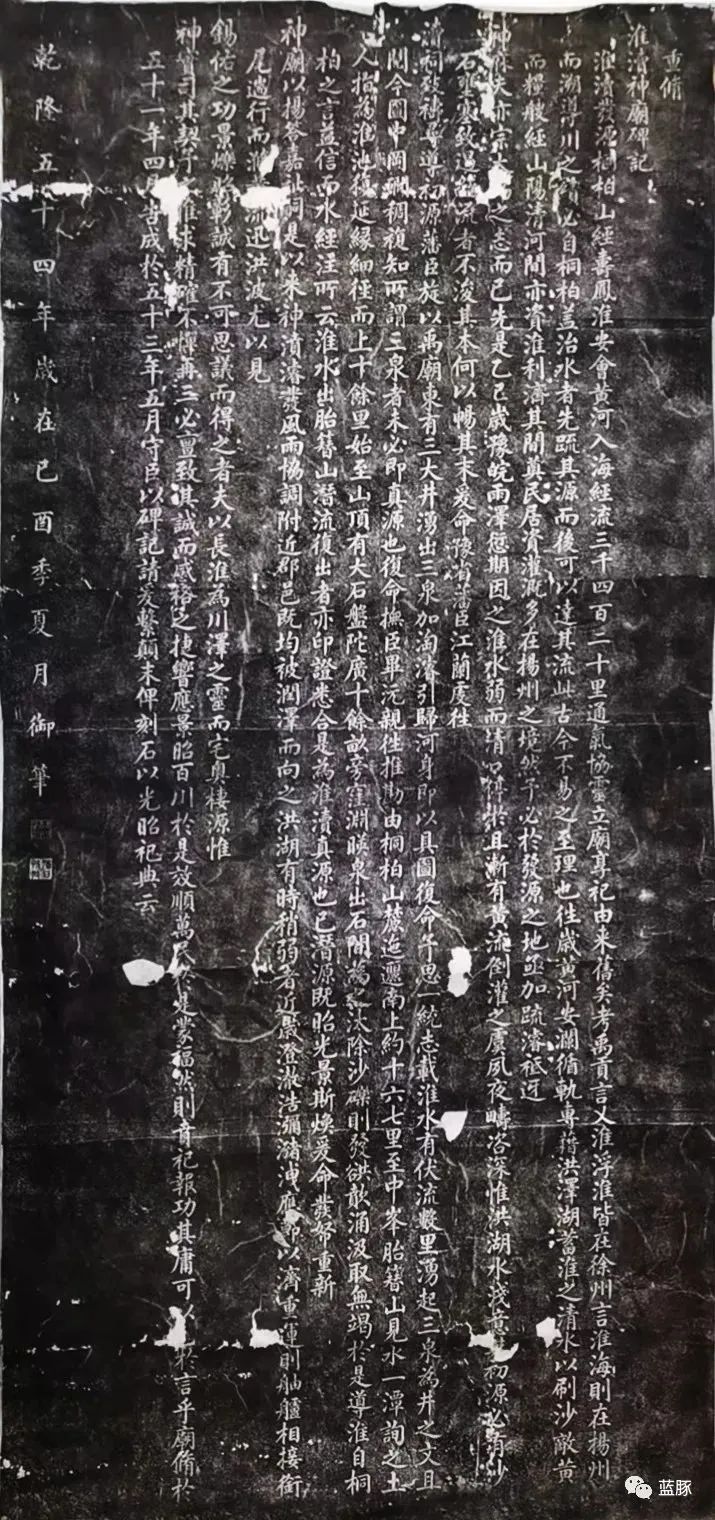 重脩
淮瀆神廟碑記
淮瀆發源桐柏山經壽鳳淮安會黃河入海經流三千四百二十里通氣協靈立廟享祀由來舊矣考禹貢言乂淮浮淮皆在徐州言淮海則在揚州
而溯導川之績必自桐柏蓋治水者先疏其源而後可以達其流此古今不易之至理也往歲黃河安瀾循軌專藉洪澤湖蓄淮之清水以刷沙敵黃
而糧艘經山陽清河間亦資淮利濟其間奠民居資灌溉多在揚州之境然予必於發源之地亟加疏濬祗迓
神庥夫亦宗之志而已先是乙巳歲豫皖雨澤愆期因之淮水弱而清口淤且漸有黃流倒灌之虞夙夜疇咨深惟洪湖水淺初源必有沙
石壅處致遏流者不浚其本何以暢其末爰命豫省藩臣江蘭虔往
瀆祠致禱尋導初源藩臣旋以禹廟東有三大井湧出三泉加淘濬引歸河身即以具圖復命乍思一統志載淮水有伏流數里湧起三泉為井之文且
閱今圖中岡巒稠複知所謂三泉者未必即真源也復命撫臣畢沅親往推勘由桐柏山麓迤邐南上約十六七里至中峯胎簪山見水一潭詢之土
人指為淮池復延緣細徑而上十餘里始至山頂有大石盤陀廣十餘畝旁窪淵睒泉出石間為汰除沙礫則發洪歕涌汲取無竭於是導淮自桐
柏之言益信而水經注所云淮水出胎簪山潛流復出者亦印證悉合是為淮瀆真源也已潛源既昭光景斯煥爰命發帑重新
神廟以揚答嘉祉詞是以來神瀆濬發風雨協調附近郡邑既均被潤澤而向之洪湖有時稍弱者近最澄澈浩瀰瀦洩應以濟重運則舳艫相接銜
尾遄行而淮流迅洪波尤以見
錫佑之功景爍彰誠有不可思議而得之者夫以長淮為川澤之靈而宅奧棲源惟
神實司其契予惟求精確不憚再三必亶致其誠而感格之捷響應景昭百川於是效順萬民於是蒙福然則音祀報功其庸可以於言乎廟脩於
五十一年四月書成於五十三年五月守臣以碑記請爰繫顛末俾刻石以光昭祀典云
乾隆五十四年歲在己酉季夏月御筆
蓝豚